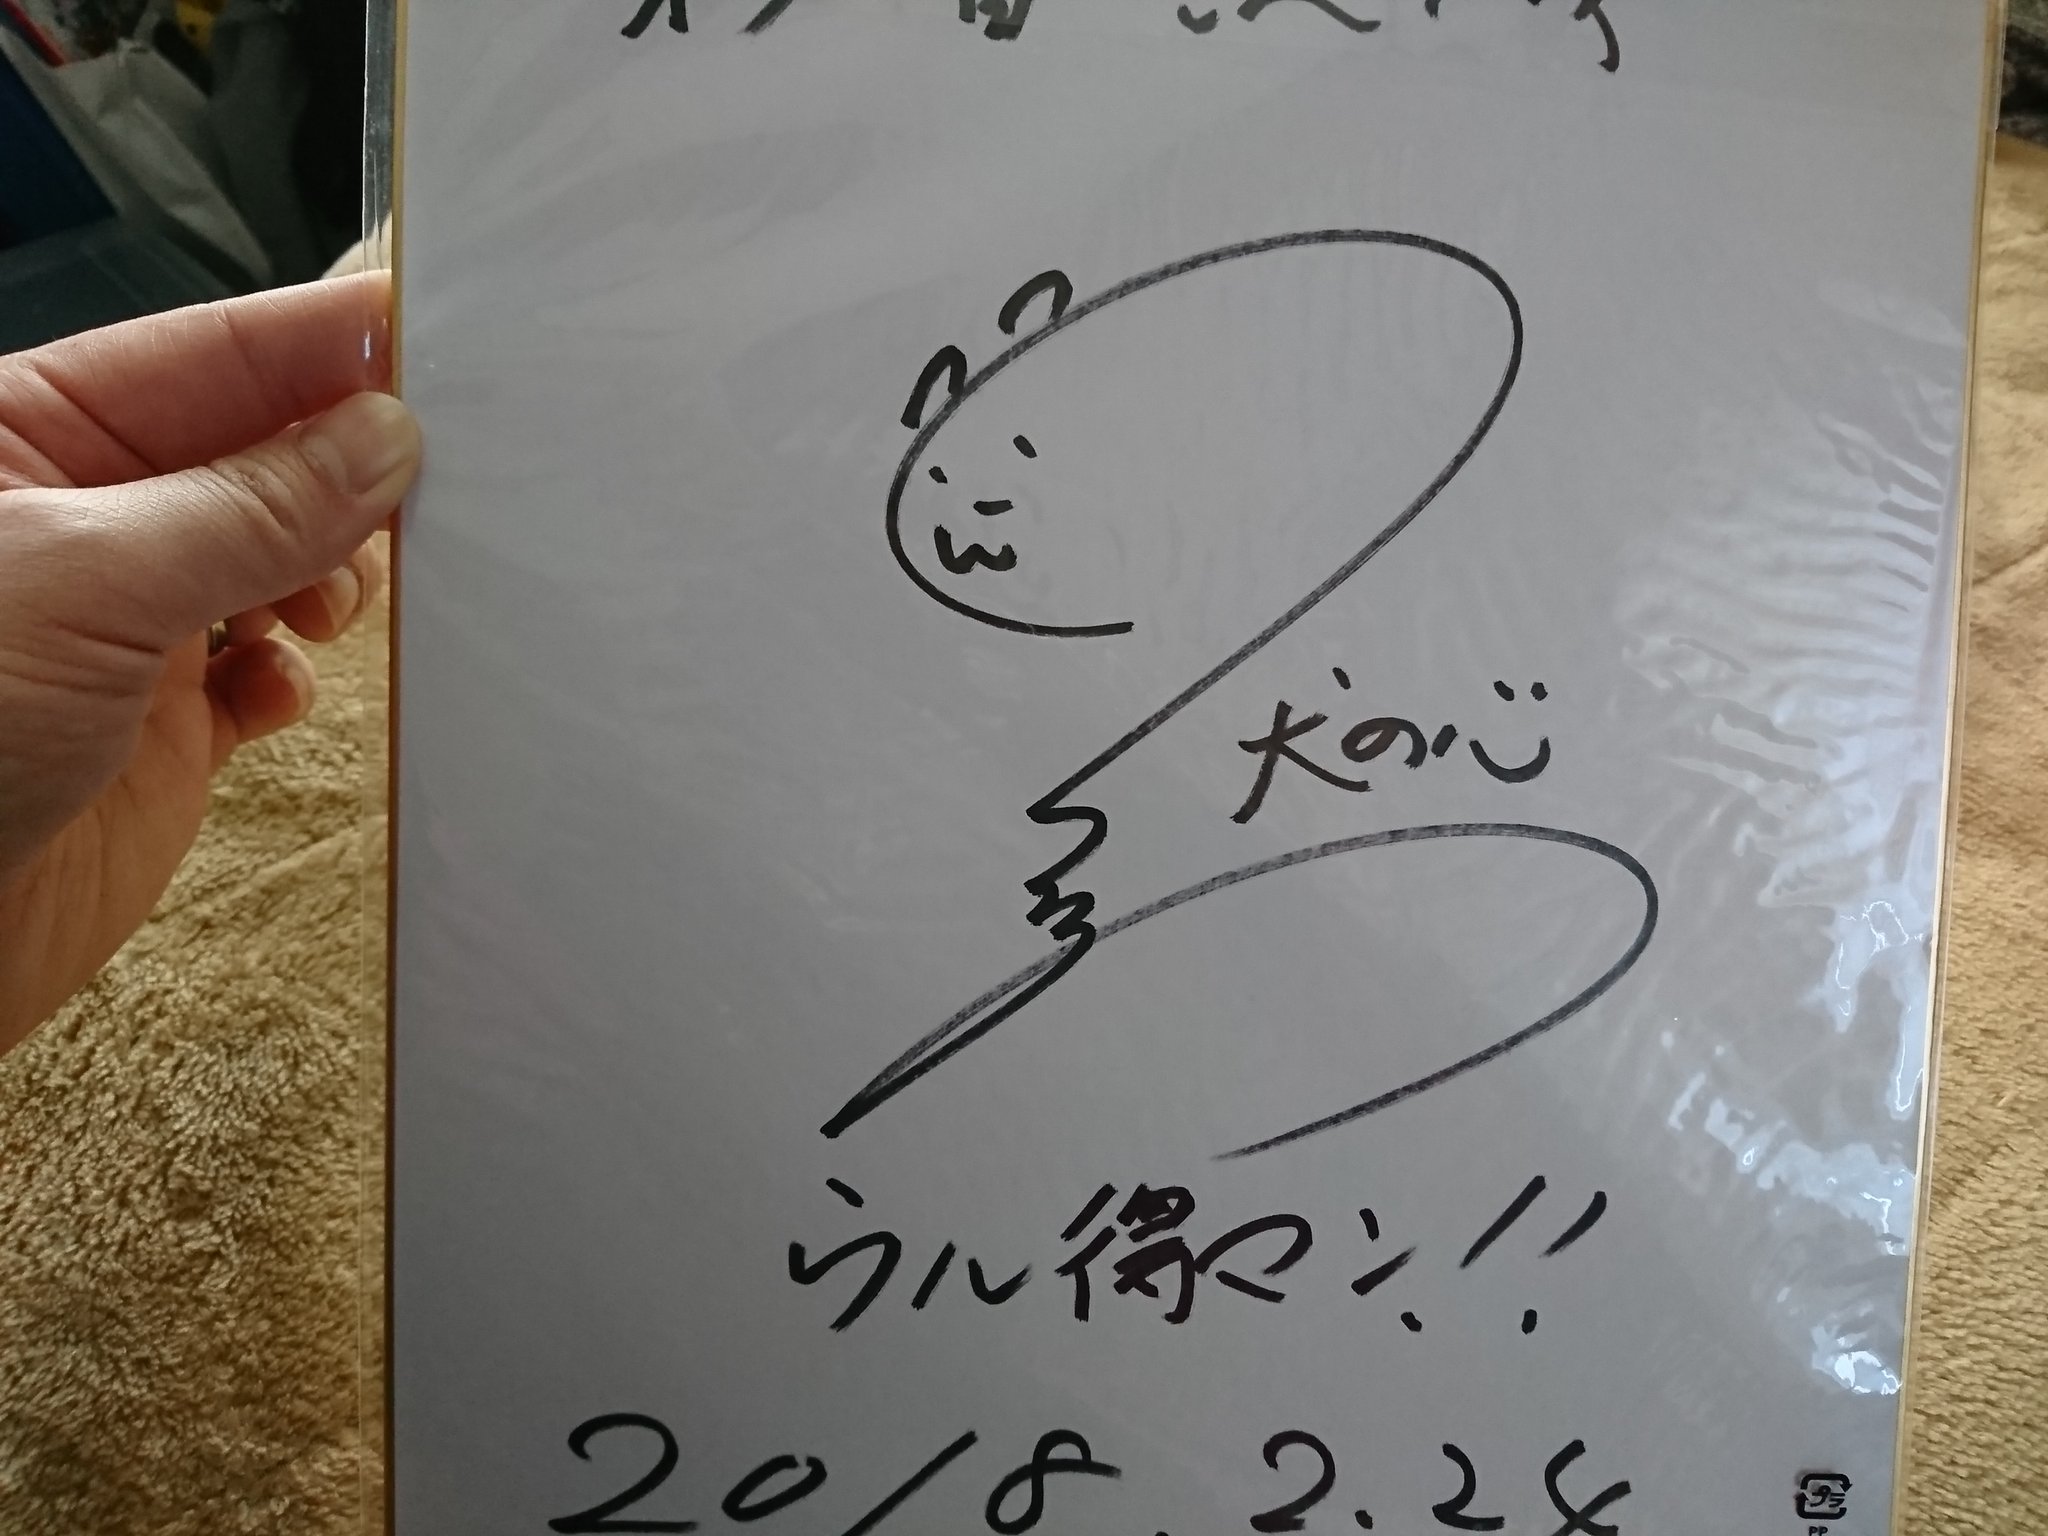 犬の心
ウル得マン!!
2018.2.24
プラ
PP